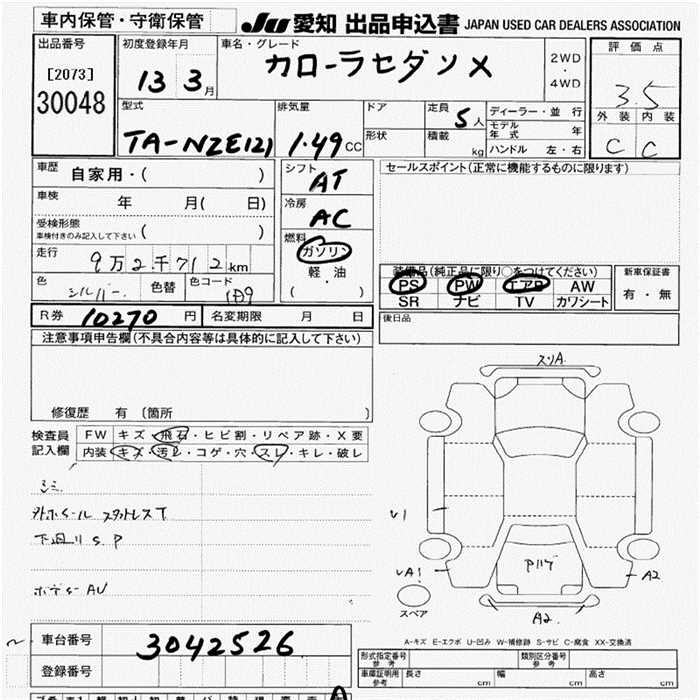 車内保管・守衛保管
JU 愛知 出品申込書 JAPAN USED CAR DEALERS ASSOCIATION
出品番号
[2073]
30048
初度登録年月
13 3月
車名・グレード
カローラセダン X
2WD
・
4WD
評価点
3.5
外装 内装
C C
型式
TA-NZE121
排気量
1.49 CC
ドア
形状
定員 5人
積載 kg
ディーラー・並行
モデル年式 年
ハンドル 左・右
車歴
自家用・( )
車検 年 月( 日)
受検形態
車検付きのみ記入して下さい ( )
走行 9万2千712km
色 シルバー 色替 色コード 1D9
シフト
AT
冷房
AC
燃料
ガソリン
軽・油
( )
セールスポイント(正常に機能するものに限ります)
装備品(純正品に限り○をつけてください)
PS PW エアB AW
SR ナビ TV カワシート
新車保証書
有・無
R券 10270 円 名変期限 月 日
後日品
注意事項申告欄(不具合内容等は具体的に記入して下さい)
修復歴 有〔箇所 〕
検査員記入欄
FW キズ・飛石・ヒビ割・リペア跡・X要
内装 キズ・汚レ・コゲ・穴・スレ・キレ・破レ
シミ
外ホイール スタットレスT
下廻りS.P
ボデーAU
スリA
U1
UA1
A2
A2
スペア
A-キズ E-エクボ U-凹み W-補修跡 S-サビ C-腐食 XX-交換済
車台番号 3042526
登録番号
形式指定番号 参考
類別区分番号 参考
車庫証明用 参考 長さ cm 幅 cm 高さ cm